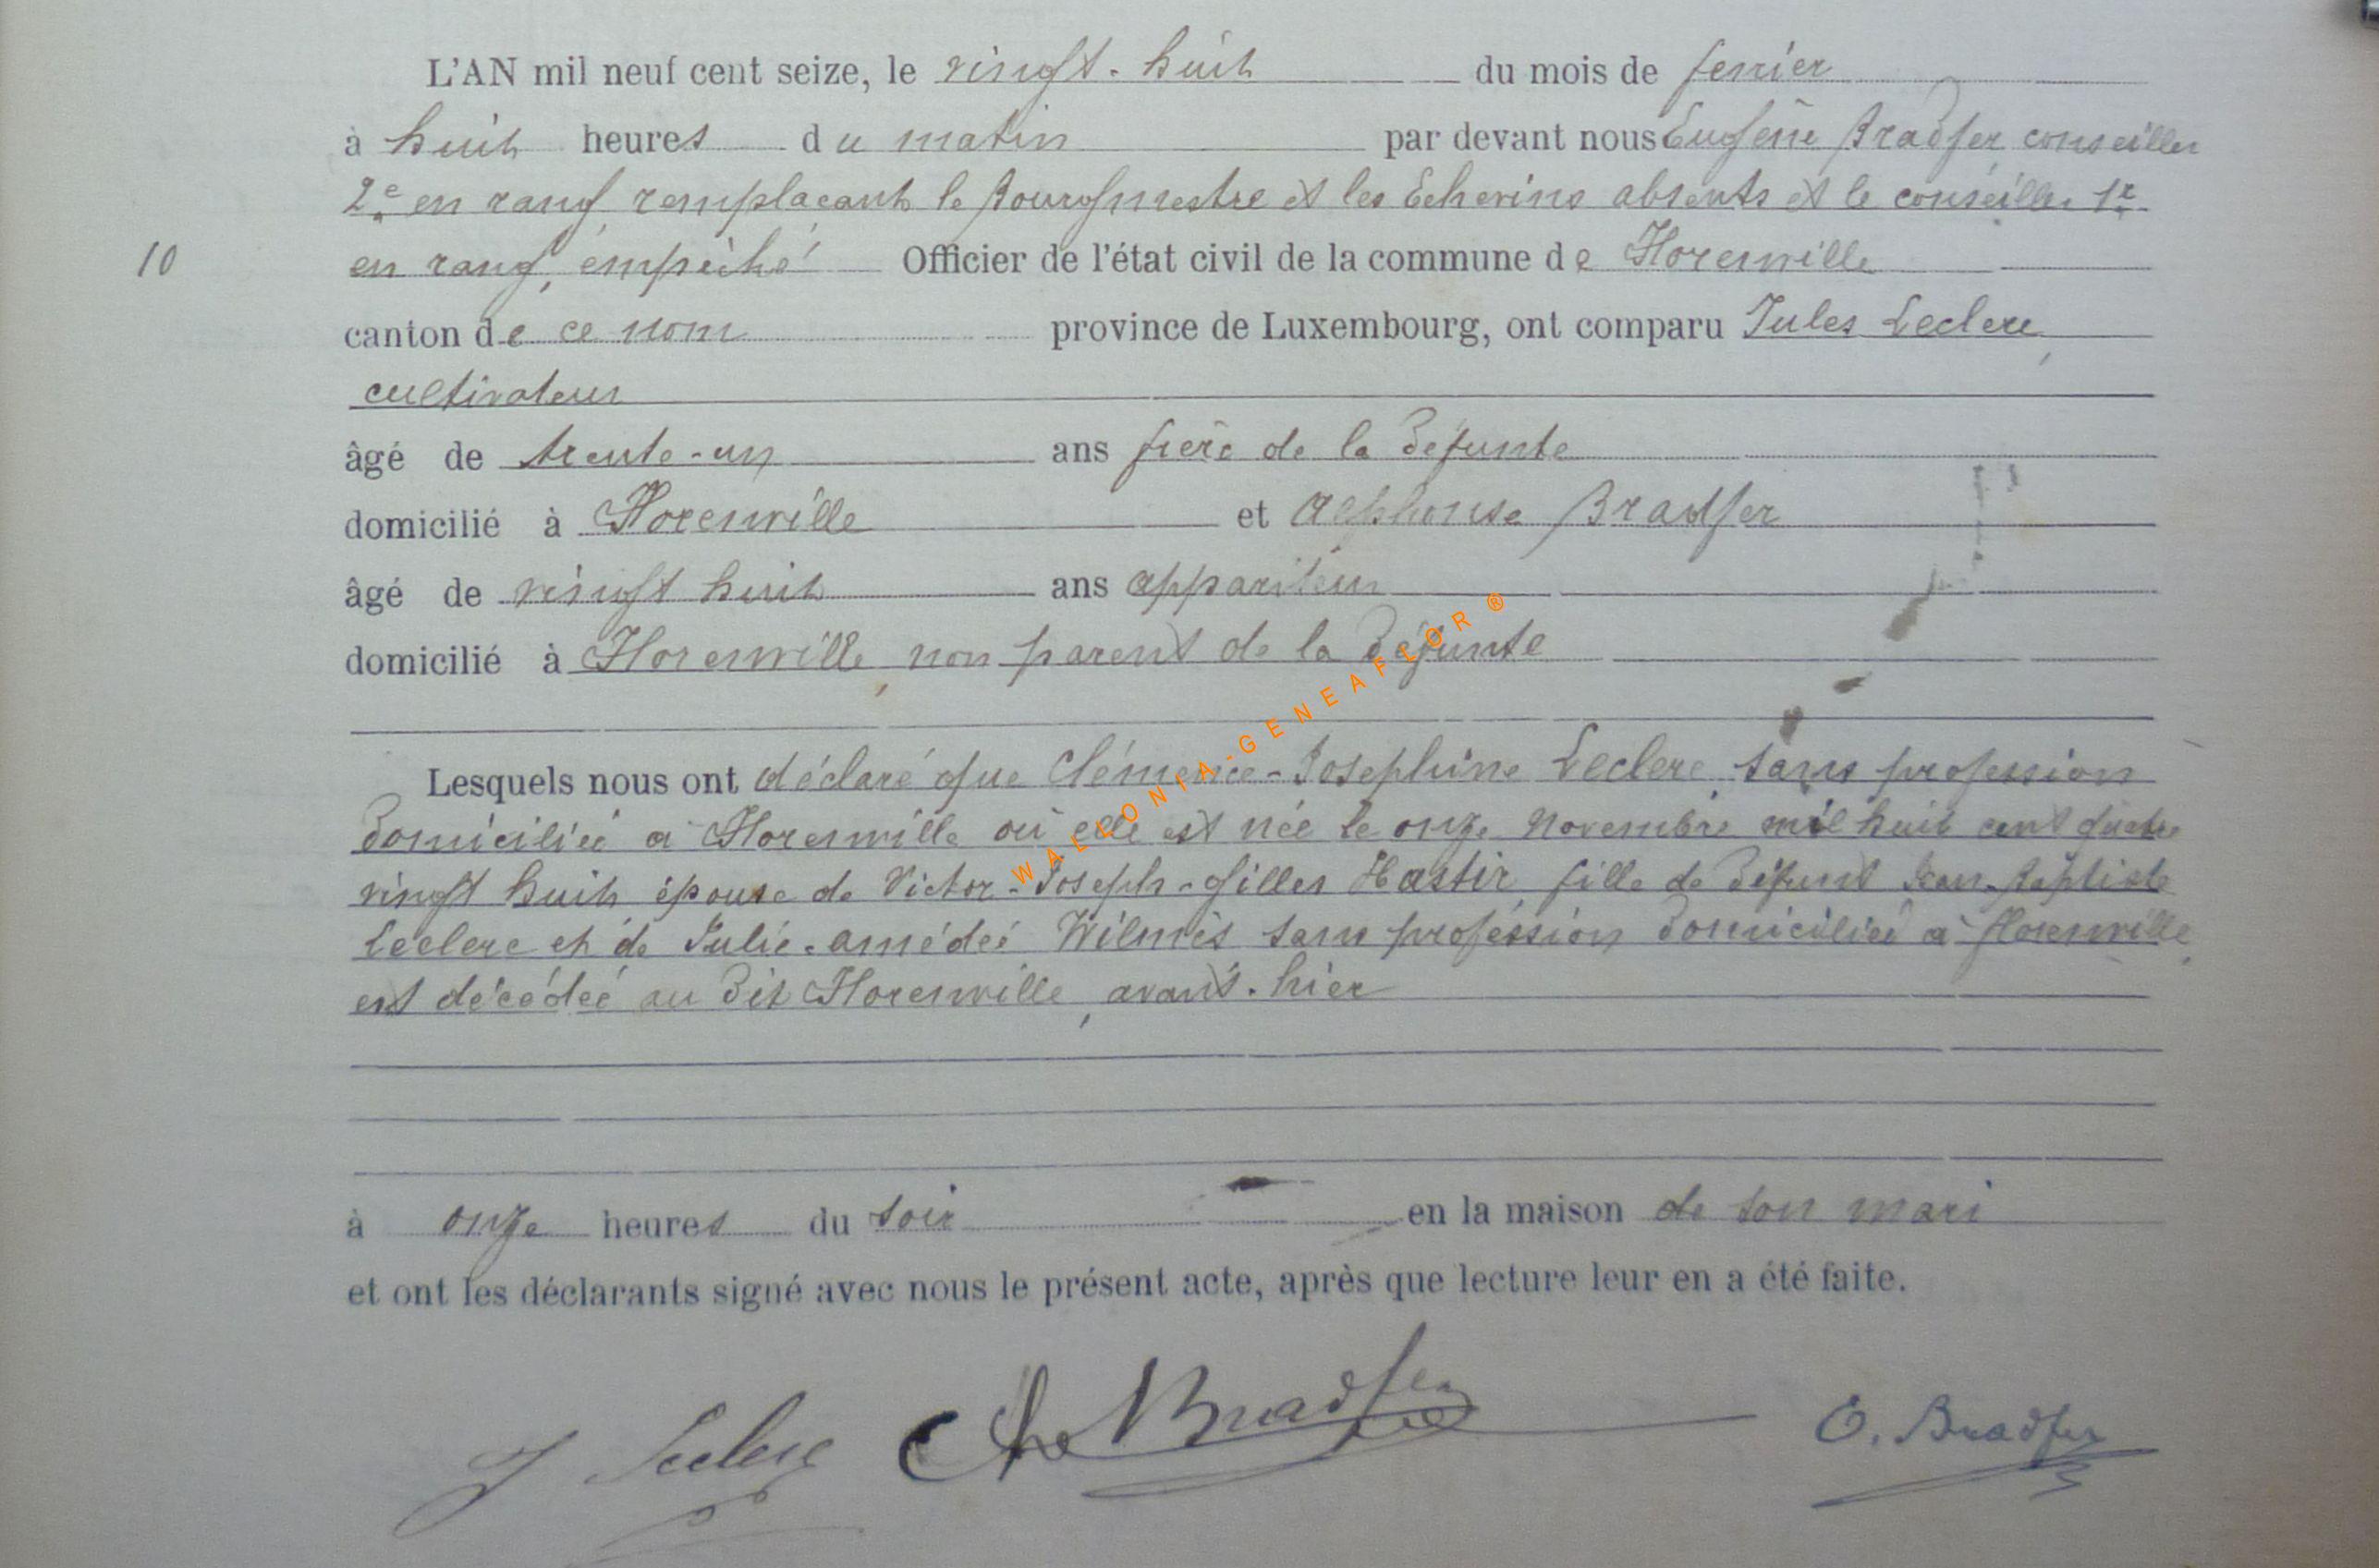 L'AN mil neuf cent seize, le vingt-huit du mois de fevrier
à huit heures du matin par devant nous Eugène Bradfer conseiller
2e en rang remplaçant le Bourgmestre et les Echevins absents et le conseiller 1r
10 en rang, empêché Officier de l'état civil de la commune de Florenville
canton de ce nom province de Luxembourg, ont comparu Jules Leclerc,
cultivateur
âgé de trente-un ans frère de la défunte
domicilié à Florenville et Alphonse Bradfer
âgé de vingt huit ans appariteur
domicilié à Florenville, non parent de la défunte
Lesquels nous ont déclaré que Clémence-Josephine Leclerc, sans profession
domiciliée à Florenville où elle est née le onze novembre mil huit cent quatre
vingt huit épouse de Victor-Joseph-Gilles Hastir, fille de défunt Jean-Baptiste
Leclerc et de Julie-Amédée Wilmès sans profession domiciliée à Florenville,
est décédée au dit Florenville, avant-hier
à onze heures du soir en la maison de son mari
et ont les déclarants signé avec nous le présent acte, après que lecture leur en a été faite.
J Leclerc Bradfer E. Bradfer
WALLONIA-GENEAFLOR ®